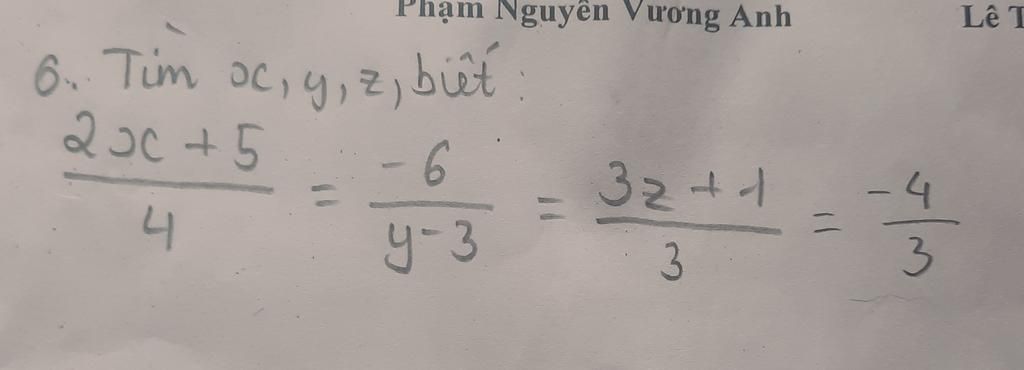 Phạm Nguyễn Vương Anh Lê T
6. Tìm x, y, z, biết:
2x + 5 / 4 = -6 / y - 3 = 3z + 1 / 3 = -4 / 3